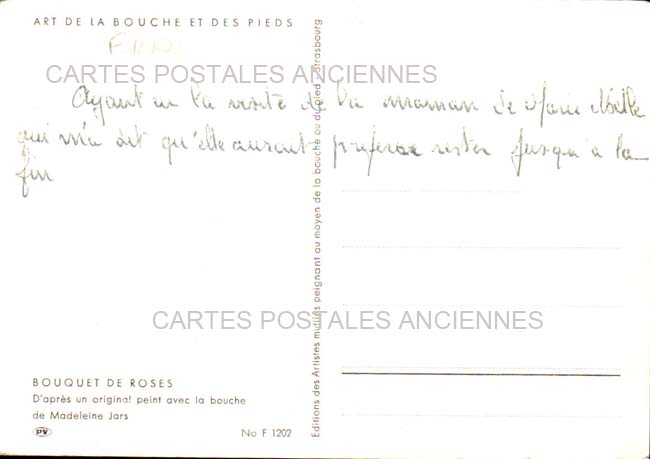 ART DE LA BOUCHE ET DES PIEDS
CARTES POSTALES ANCIENNES
Ayant eu la visite de la maman de Marie Noëlle
qui m'a dit qu'elle aurait préféré rester jusqu'à la
fin
Editions des Artistes mutilés peignant au moyen de la bouche ou du pied - Strasbourg
CARTES POSTALES ANCIENNES
BOUQUET DE ROSES
D'après un original peint avec la bouche
de Madeleine Jars
PV
No F 1202